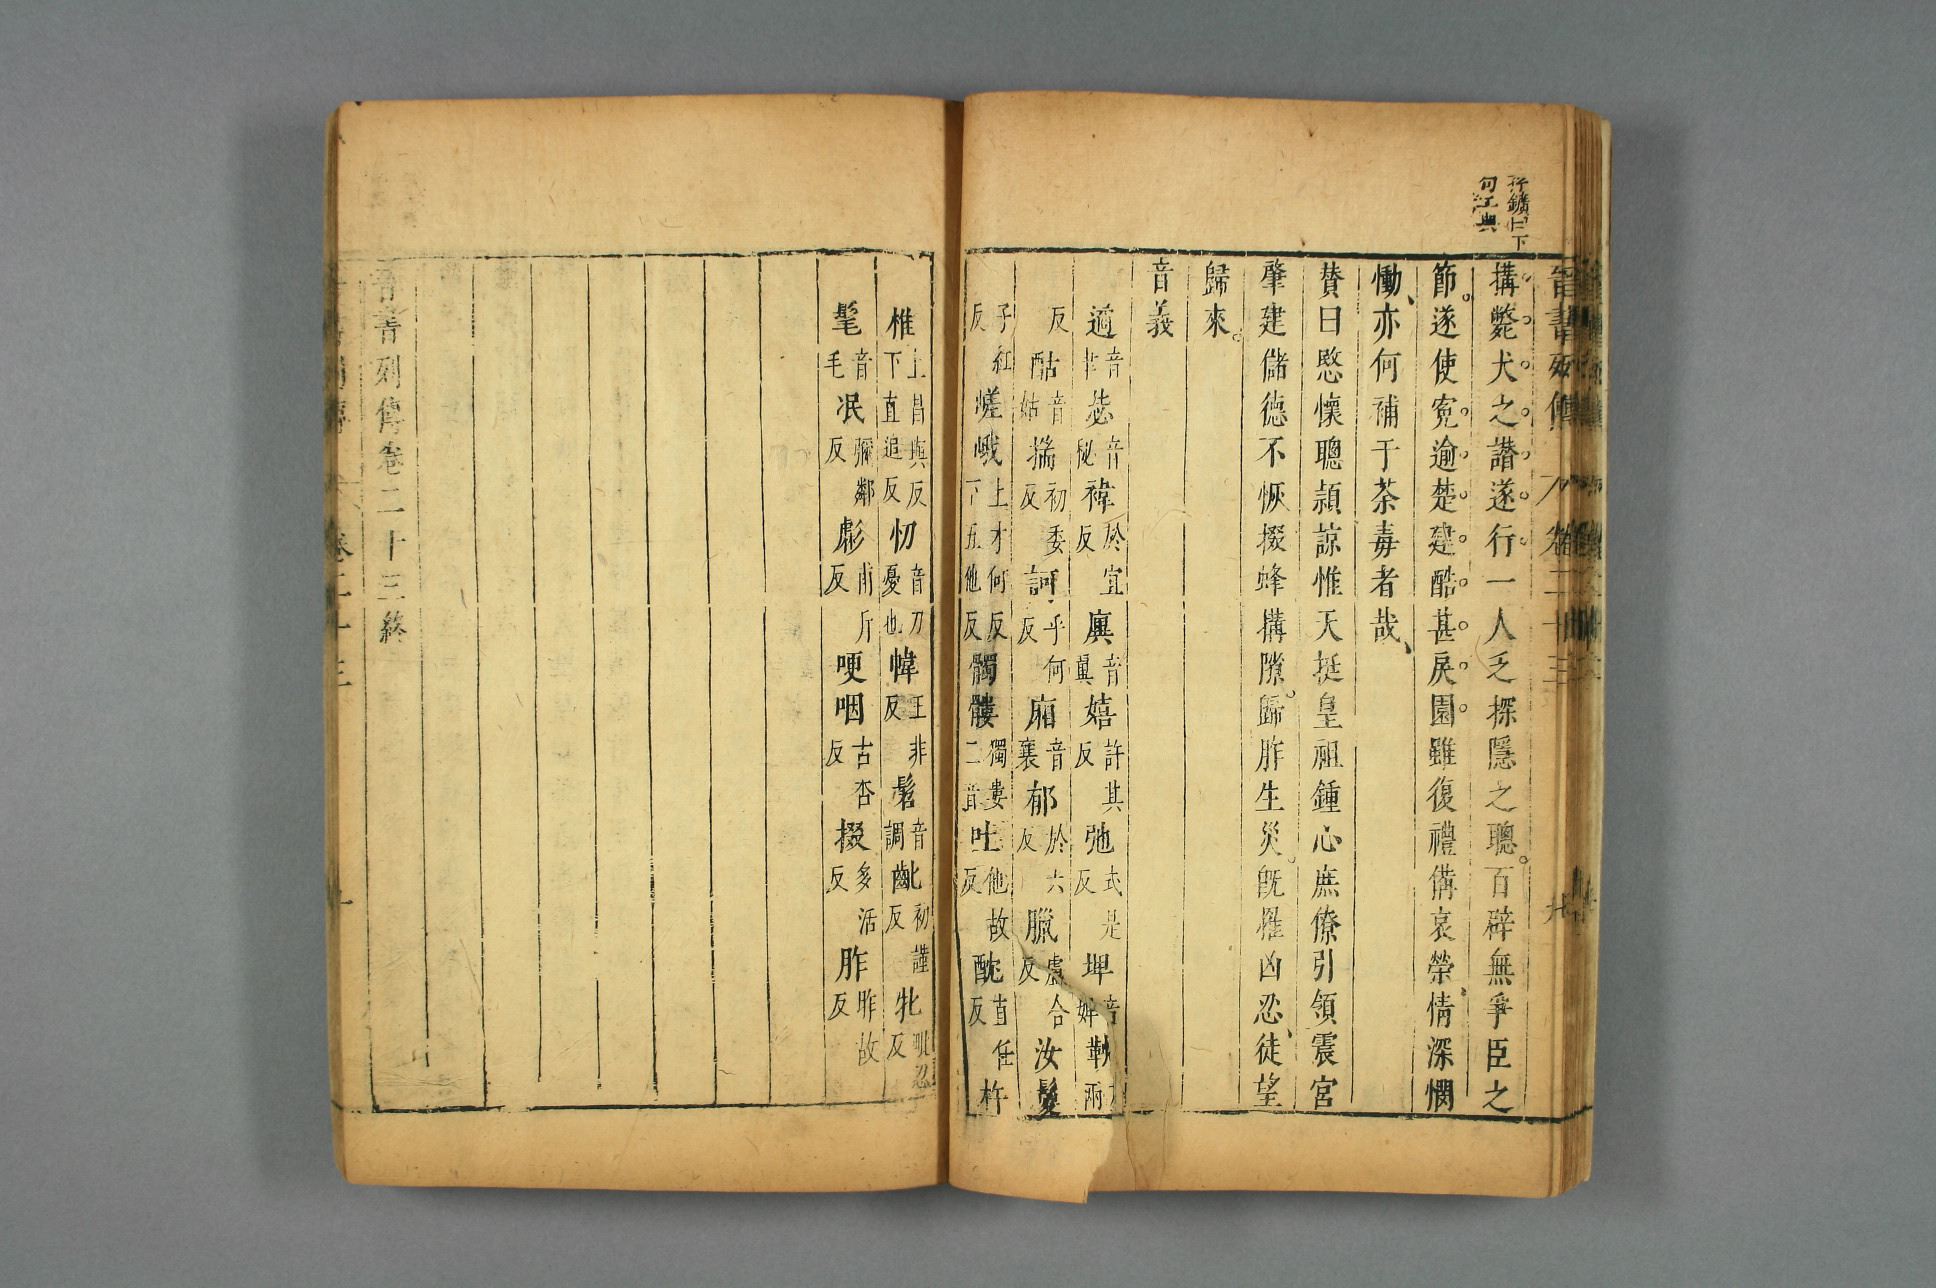 搆斃犬之譖遂行一人乏探隱之聰百辟無爭臣之
節遂使寃逾楚建酷甚戾園雖復禮備哀榮情深憫
慟亦何補于荼毒者哉
贊曰愍懷聰頴諒惟天挺皇祖鍾心庶僚引領震宮
肇建儲德不恢掇蜂搆隙歸胙生災旣罹凶忍徒望
歸來
音義
遹音聿 毖音秘 褘於宜反 廙音翼 嬉許其反 弛式是反 埤音婢 勒
反 酤音姑 揣初委反 訶乎何反 廂音襄 郁於六反 臘盧合反 汝 鬉
子紅反 嵯峨上才何反下五他反 髑髏獨婁二音 吐他故反 酖直任反 杵
椎上昌與反下直追反 忉音刀憂也 幃王非反 髫音調 齔初謹反 牝毗忍反
髦音毛 泯彌鄰反 彪甫斤反 哽咽古杏反 掇多活反 胙昨故反
晉書列傳卷二十三終